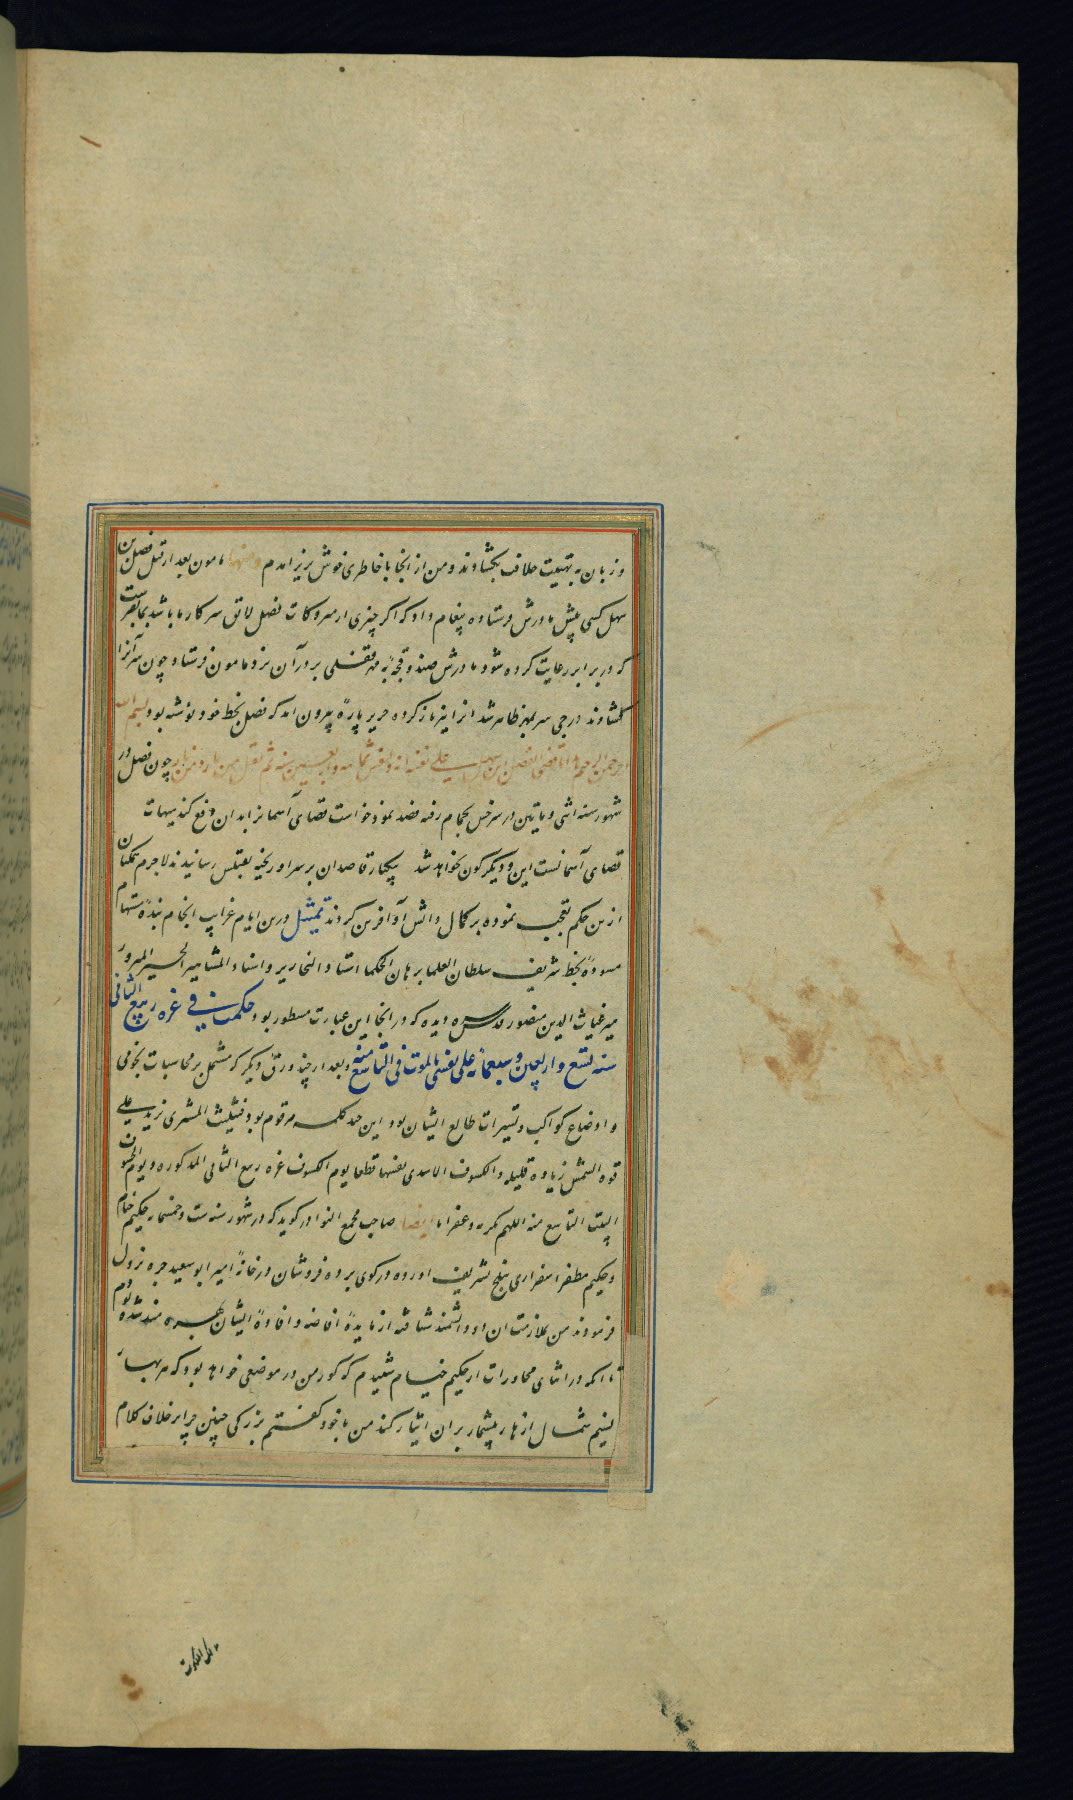 و زبان به تهنیت خلاف بگشادند و من از آنجا با خاطری خوش بزیر آمدم ومنها مامون بعد از قتل فضل بن
سهل کسی پیش مادرش فرستاده پیغام داد که اگر چیزی از متروکات فضل لایق سرکار ما باشد بما بفرست
که در برابر رعایت کرده شود مادرش صندوقچهٔ به مهر قفلی بر در آن نزد مامون فرستاد چون سر آنرا
گشادند درجی سر بمهر ظاهر شد انرا نیز باز کرده حریر پارهٔ بیرون امد که فضل بخط خود نوشته بود بسم الله
الرحمن الرحیم هذا ما قضی الفضل ابن سهل علی نفسه انه یعیش ثمانیه و اربعین سنه ثم یقتل بین ماء و نار چون فضل در
شهور سنه اثنی و مایتین در سرخس بحمام رفته فصد نمود خواست قضای آسمانرا بدان دفع کند هیهات
قضای آسمانست این و دیگرگون نخواهد شد یکبار قاصدان بر سر او ریخته بقتلش رسانیدند لاجرم همکنان
ازین حکم تعجب نموده بر کمال دانش او آفرین کردند تمثیل درین ایام غرایب انجام بندهٔ مستهام
مسودهٔ بخط شریف سلطان العلما برهان الحکما استاد النحاریر و استاد المشاهیر المبرور
میر غیاث الدین منصور قدس سره دیده که در انجا این عبارت مسطور بود حکمت فی غره ربیع الثانی
سنه تسع و اربعین و سبعمائه علی نفسی بالموت فی التاسع منه و بعد از چند ورق دیگر که مشتمل بر محاسبات نجومی
و اوضاع کواکب و تسییرات طالع ایشان بود این چند کلمه مرقوم بود فتثلیث المشتری یزید علی
قوه الشمس زیاده قلیله و الکسوف الاسدی بعضها قطعا یوم الکسوف غره ربیع الثانی المذکوره و یوم الخسوف
البیت التاسع منه اللهم کرمه و غفرانا ایضا صاحب مجمع النوادر گوید که در شهور سنه ست و خمسمایه حکیم خیام
و حکیم مظفر اسفراری ببلخ تشریف اورده در کوی برده فروشان در خانهٔ امیر ابو سعید جره نزول
فرمودند من بملازمت ان دو دانشمند شتافته از مایدهٔ افاضه و افادهٔ ایشان بهره مند شده بودم
تا انکه در اثنای محاورات از حکیم خیام شنیدم که گور من در موضعی خواهد بود که هر بهار
نسیم شمال ازهار بیشمار بر ان ایثار کند من با خود گفتم بزرگی چنین چرا بر خلاف کلام